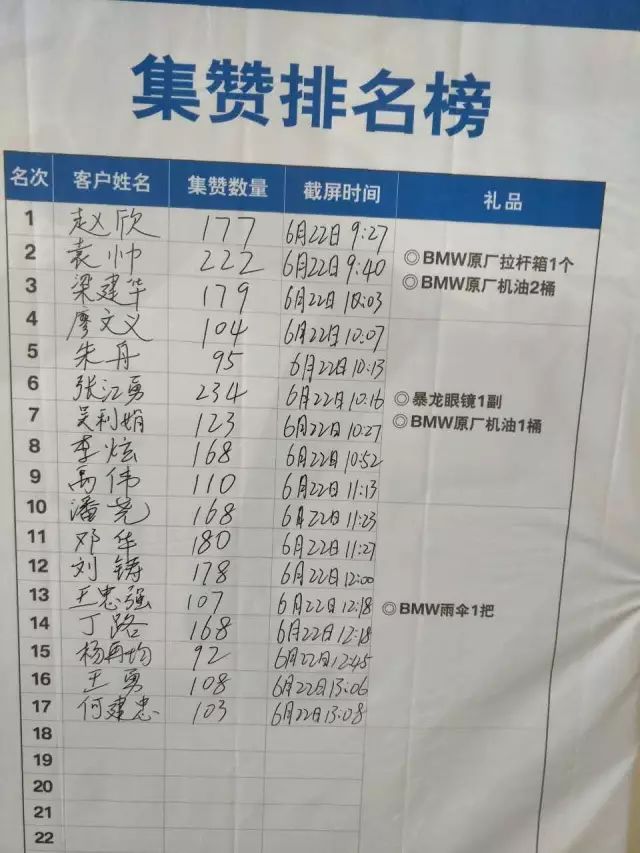 集赞排名榜
名次 客户姓名 集赞数量 截屏时间 礼品
1 赵欣 177 6月22日 9:27
2 袁帅 222 6月22日 9:40
◎BMW原厂拉杆箱1个
3 梁建华 179 6月22日 10:03
◎BMW原厂机油2桶
4 廖文义 104 6月22日 10:07
5 朱丹 95 6月22日 10:13
6 张江勇 234 6月22日 10:16
◎暴龙眼镜1副
7 吴利娟 123 6月22日 10:27
◎BMW原厂机油1桶
8 李炫 168 6月22日 10:52
9 禹伟 110 6月22日 11:13
10 潘亮 168 6月22日 11:23
11 邓华 180 6月22日 11:27
12 刘铸 178 6月22日 12:00
13 王忠强 107 6月22日 12:18
◎BMW雨伞1把
14 丁路 168 6月22日 12:18
15 杨再均 92 6月22日 12:45
16 王勇 108 6月22日 13:06
17 何建忠 103 6月22日 13:08
18
19
20
21
22